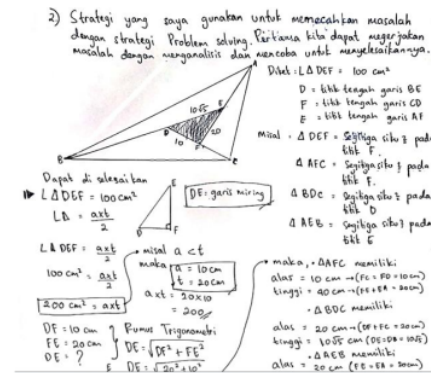 2) Strategi yang saya gunakan untuk memecahkan masalah
dengan strategi Problem solving. Pertama kita dapat mengerjakan
masalah dengan menganalisis dan mencoba untuk menyelesaikannya.
Diket : L Δ DEF = 100 cm²
D = titik tengah garis BE
F = titik tengah garis CD
E = titik tengah garis AF
A
10√5
E
D
20
10
F
B
C
Misal . Δ DEF = Segitiga siku² pada
titik F.
Δ AFC = Segitiga siku² pada
titik F.
Δ BDC = Segitiga siku² pada
titik D
Δ AEB = Segitiga siku² pada
titik E
Dapat di selesaikan
L Δ DEF = 100 cm²
LΔ = axt
2
E
D
F
DE : garis miring
L Δ DEF = axt
2
100 cm² = axt
2
200 cm² = axt
misal a < t
maka a = 10 cm
t = 20 cm
axt = 20x10
= 200
DF = 10 cm
FE = 20 cm
DE = ?
Rumus Trigonometri
DE = √DF² + FE²
DE = √20² + 10²
maka, • ΔAFC memiliki
alas = 10 cm → (FC = FD = 10 cm)
tinggi = 40 cm → (FE + EA = 40 cm)
• Δ BDC memiliki
alas = 20 cm → (DF + FC = 20 cm)
tinggi = 10√5 cm (DE = DB = 10√5)
• Δ AEB memiliki
alas = 20 cm (FE = EA = 20 cm)